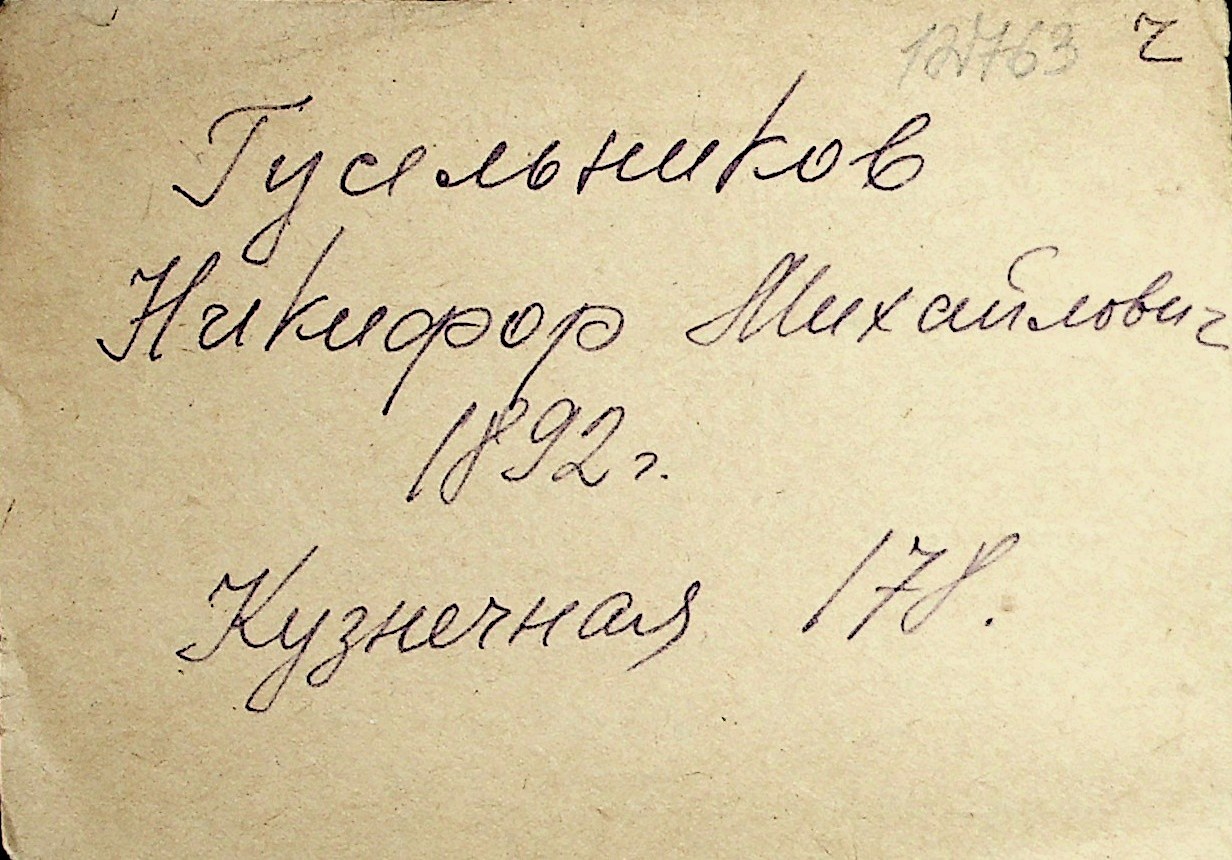 12763 ч
Гусельников
Никифор Михайлович
1892 г.
Кузнечная 178.